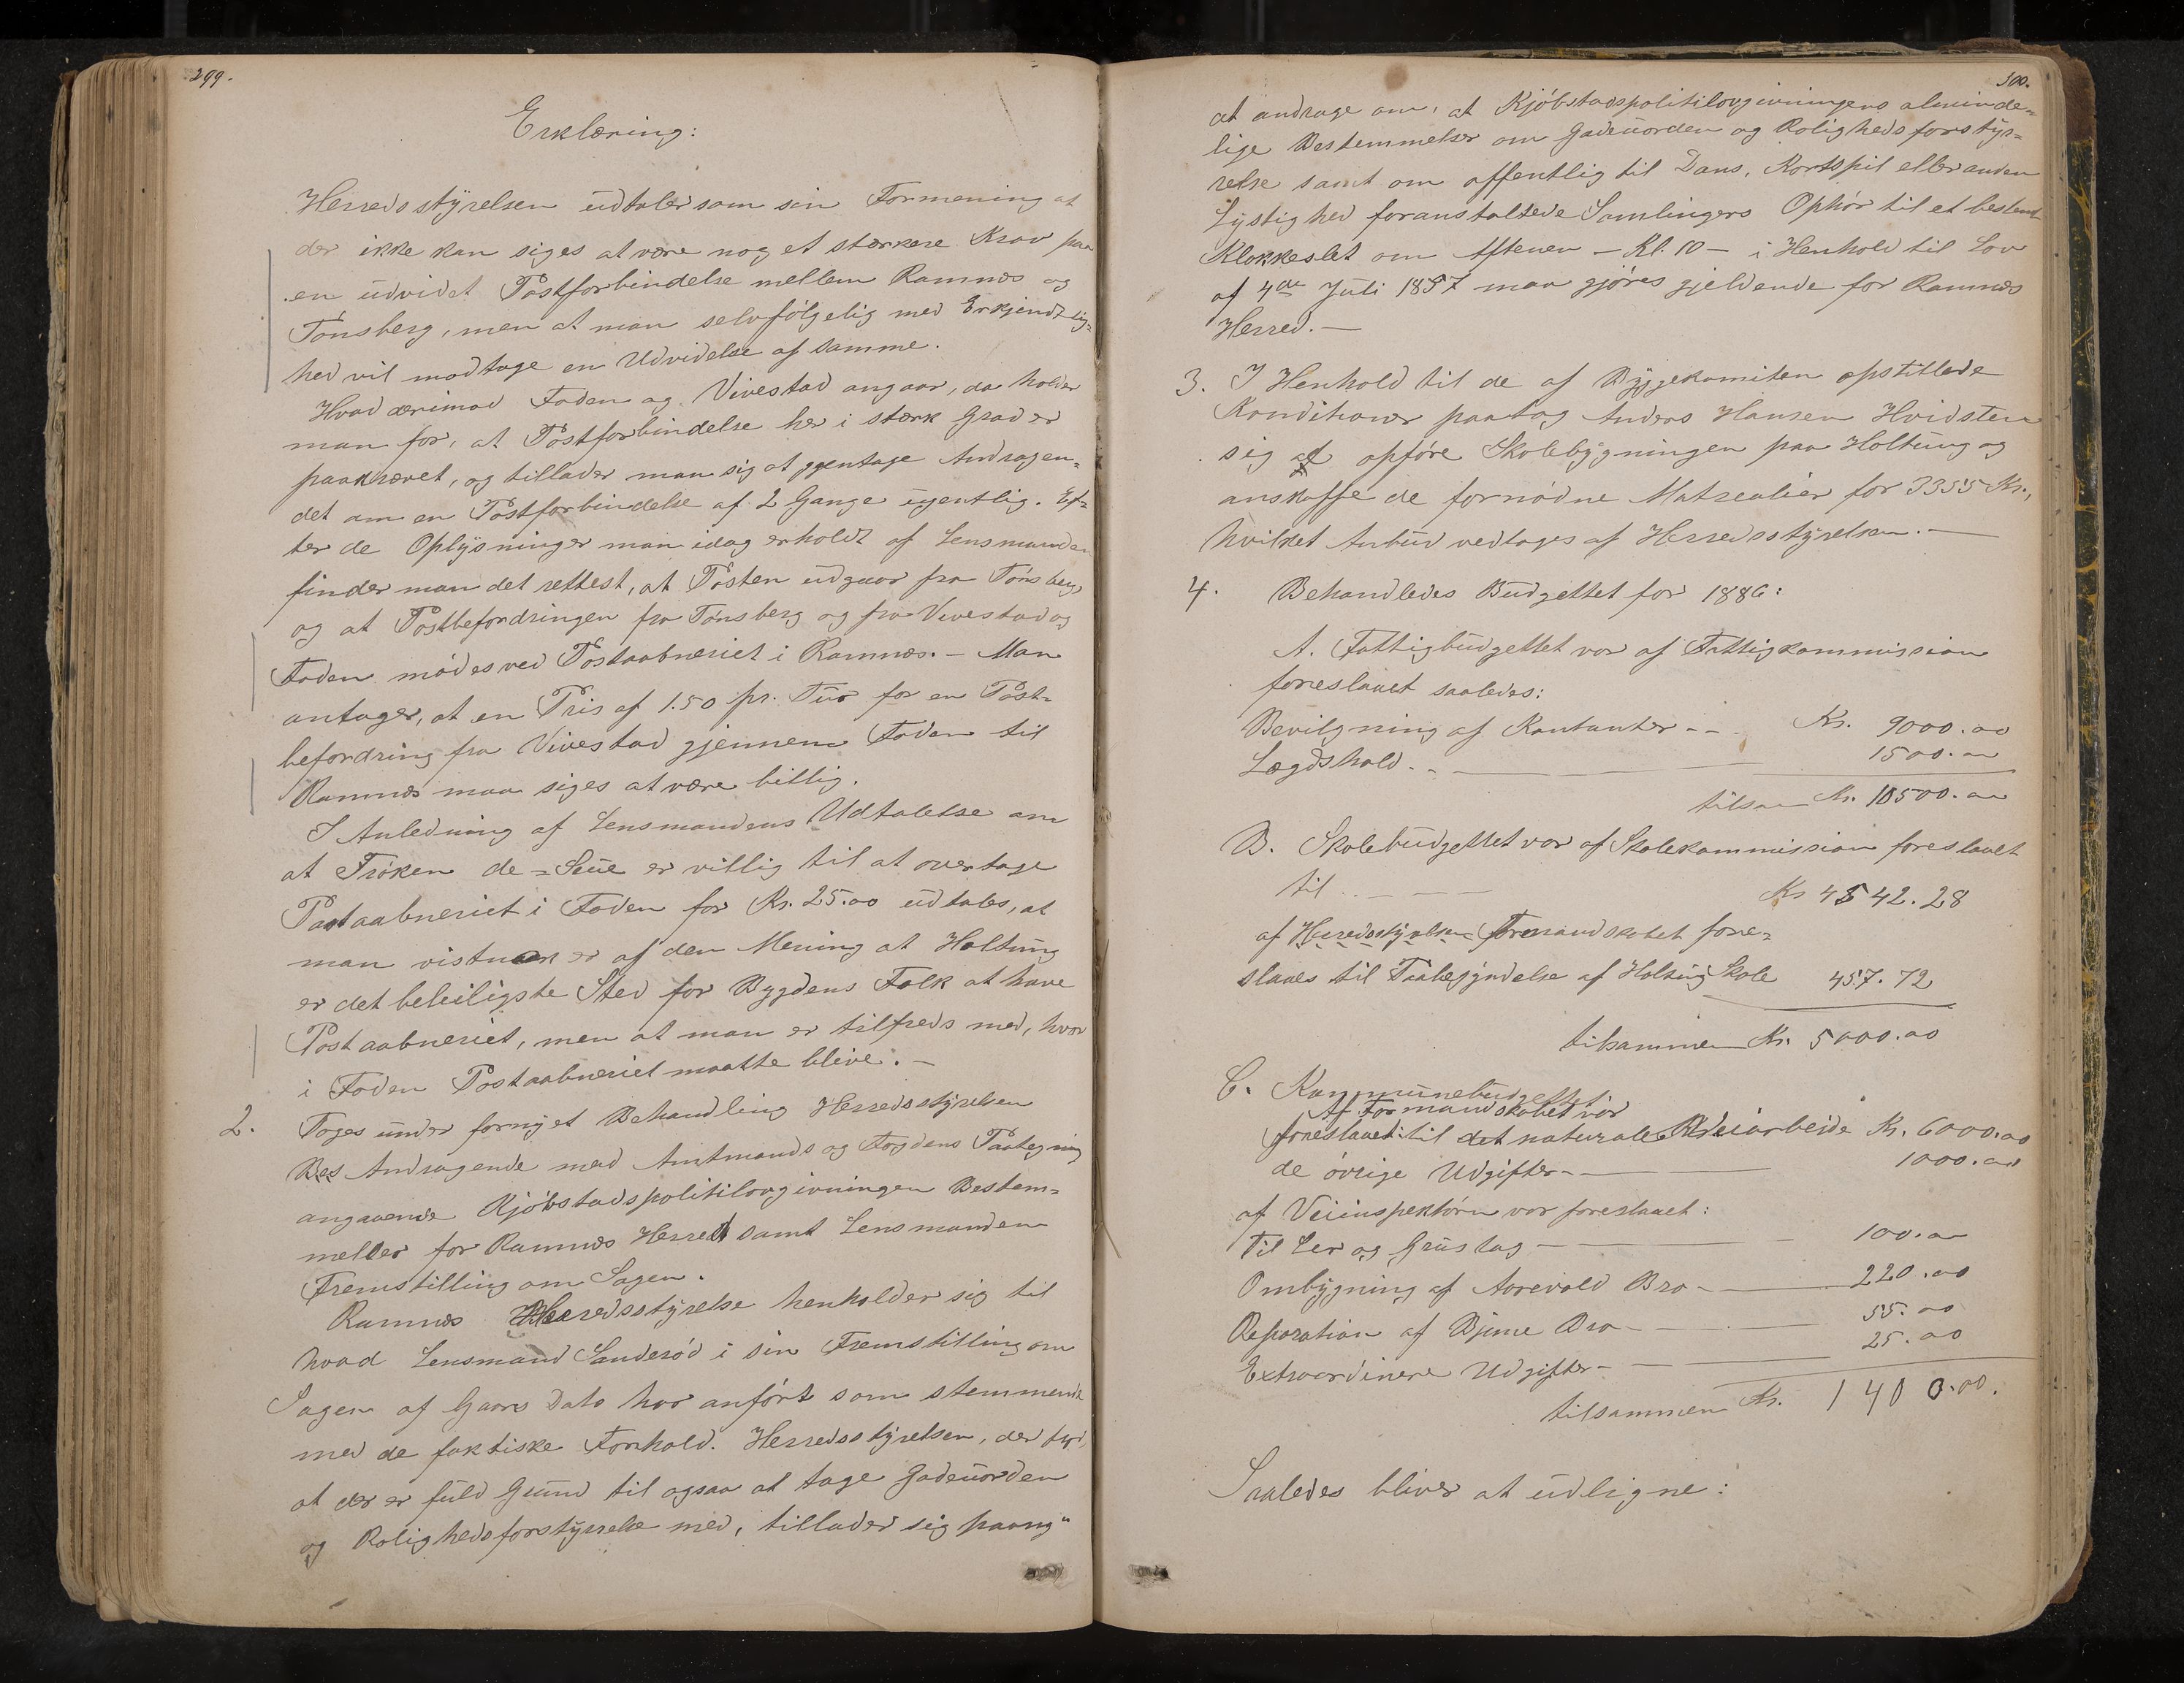 299.
Erklæring:
Herredsstyrelsen udtaler som sin Formening at
der ikke kan siges at være noget stærkere Krav paa
en udvidet Postforbindelse mellem Ramnæs og
Tønsberg, men at man selvfølgelig med Erkjendtlig=
hed vil modtage en Udvidelse af samme.
Hvad derimod Foden og Vivestad angaar, da holder
man for, at Postforbindelse her i stærk Grad er
paakrævet, og tillader man sig at gjentage Andragen=
det om en Postforbindelse af 2 Gange ugentlig. Ef=
ter de Oplysninger man idag erholdt af Lensmanden
finder man det rettest, at Posten udgaar fra Tønsberg
og at Postbefordringen fra Tønsberg og fra Vivestad og
Foden mødes ved Postaabneriet i Ramnæs. – Man
antager, at en Pris af 1.50 pr. Tur for en Post=
befordring fra Vivestad gjennem Foden til
Ramnæs maa siges at være billig.
I Anledning af Lensmandens Udtalelse om
at Frøken de=Seue er villig til at overtage
Postaabneriet i Foden for Kr. 25.00 udtales, at
man vistnok er af den Mening at Holtung
er det beleiligste Sted for Bygdens Folk at have
Postaabneriet, men at man er tilfreds med, hvor
i Foden Postaabneriet maatte blive. –
2. Toges under fornyet Behandling Herredsstyrelsen
Andragende med Amtmands og Fogdens Paategning
angaaende Kjøbstadspolitilovgivningen Bestem=
melser for Ramnæs Herred samt Lensmanden
Fremstilling om Sagen.
Ramnæs Herredsstyrelse henholder sig til
hvad Lensmand Sanderød i sin Fremstilling om
Sagen af Gaars Dato har anført som stemmende
med de faktiske Forhold. Herredsstyrelsen, der
at der er fuld Grund til ogsaa at tage Gadeuorden
og Rolighedsforstyrrelse med, tillader sig paany"
300.
at andrage om, at Kjøbstadspolitilovgivningens alminde=
lige Bestemmelser om Gadeuorden og Rolighedsforstyr=
relse samt om offentlig til Dans, Kortspil eller anden
Lystighed foranstaltede Samlingers Ophør til et bestemt
Klokkeslet om Aftenen – Kl. 10 – i Henhold til Lov
af 4de Juli 1857 maa gjøres gjeldende for Ramnæs
Herred. –
3. I Henhold til de af Byggekomiteen opstillede
Konditioner paatog Anders Hansen Hvidsten
sig at opføre Skolebygningen paa Holtung og
anskaffe de fornødne Matrealier for 3355 Kr.,
hvilket Anbud vedtages af Herredsstyrelsen. –
4. Behandledes Budgettet for 1886:
A. Fattigbudgettet var af Fattigkommission
foreslaaet saaledes:
Bevilgning af Kontanter - - Kr. 9000.00
Lægdshold - - 1500.00
tilsam Kr. 10500.00
B. Skolebudgettet var af Skolekommission foreslaaet
til - - - Kr 4542.28
af Herredsstyrelsen Formandskabet fore=
slaaes til Fuldbyndelse af Holtung Skole 457.72
tilsammen Kr. 5000.00
C. Kommunebudgettet
Af Formandskabet var
foreslaaet: til det naturale Veiarbeide Kr. 6000.00
de øvrige Udgifter - 1000.00
af Veiinspektøren var foreslaaet:
Til Ler og Grustag - 100.00
Ombygning af Aarevold Bro - 220.00
Reparation af Bjune Bro - 55.00
Extraordinære Udgifter - 25.00
tilsammen Kr. 1400.00.
Saaledes bliver at udligne: